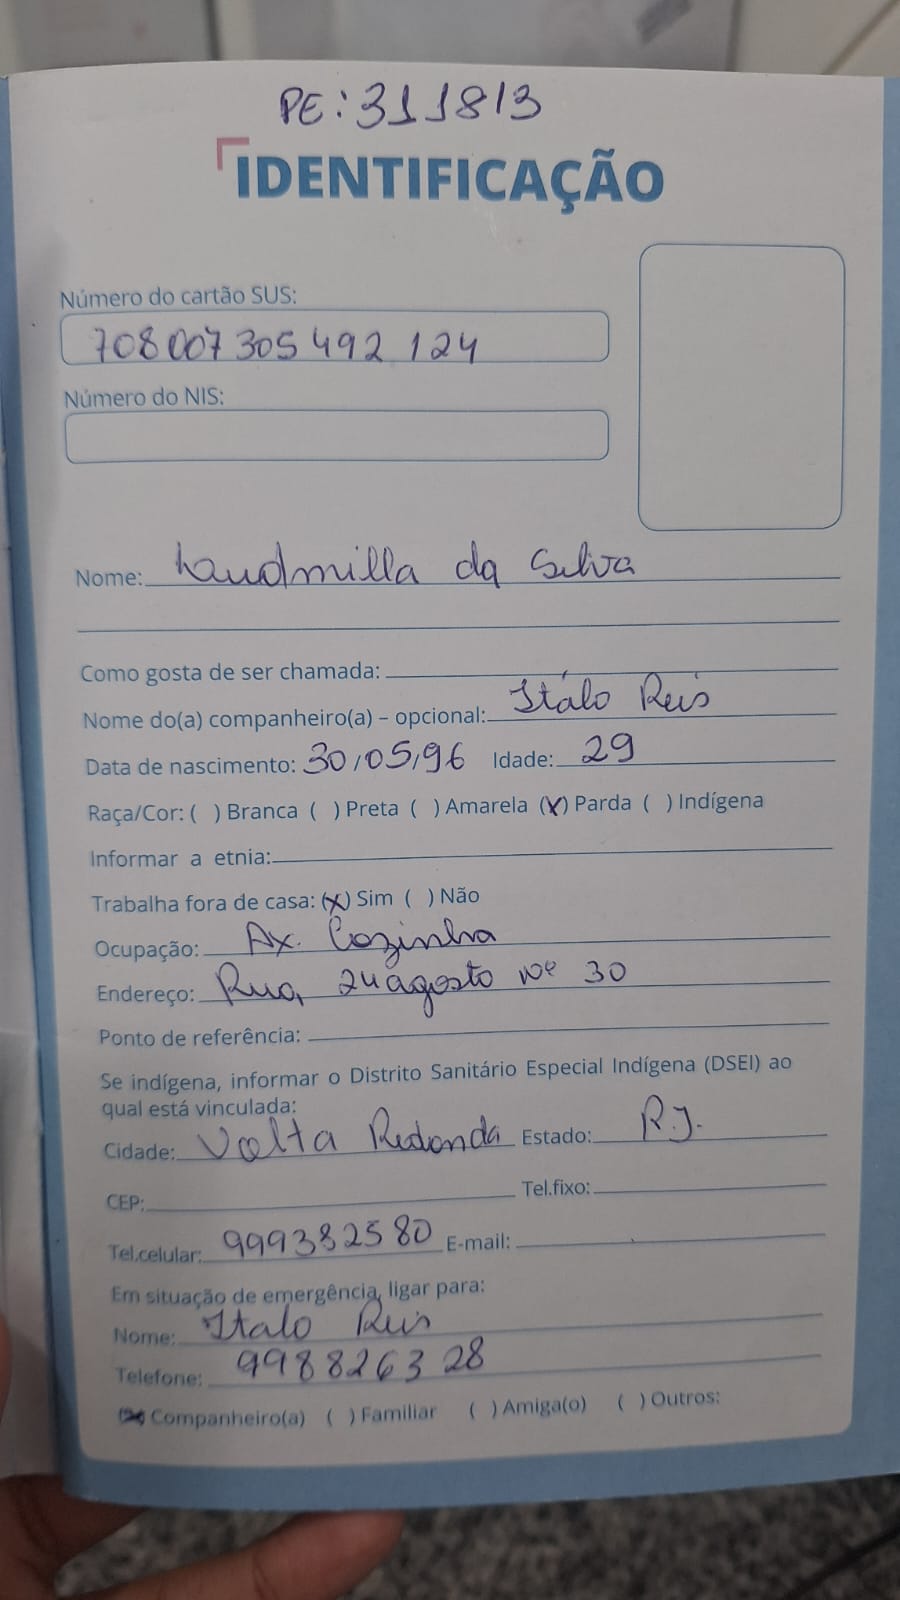 PE: 311813
IDENTIFICAÇÃO
Número do cartão SUS:
708 007 305 492 124
Número do NIS:
Nome: Laudmilla da Silva
Como gosta de ser chamada:
Nome do(a) companheiro(a) – opcional: Ítalo Reis
Data de nascimento: 30/05/96 Idade: 29
Raça/Cor: ( ) Branca ( ) Preta ( ) Amarela (X) Parda ( ) Indígena
Informar a etnia:
Trabalha fora de casa: (X) Sim ( ) Não
Ocupação: Ax. Cozinha
Endereço: Rua, 24 agosto nº 30
Ponto de referência:
Se indígena, informar o Distrito Sanitário Especial Indígena (DSEI) ao
qual está vinculada:
Cidade: Volta Redonda Estado: R.J.
CEP: Tel.fixo:
Tel.celular: 999382580 E-mail:
Em situação de emergência, ligar para:
Nome: Italo Reis
Telefone: 998826328
(X) Companheiro(a) ( ) Familiar ( ) Amiga(o) ( ) Outros: